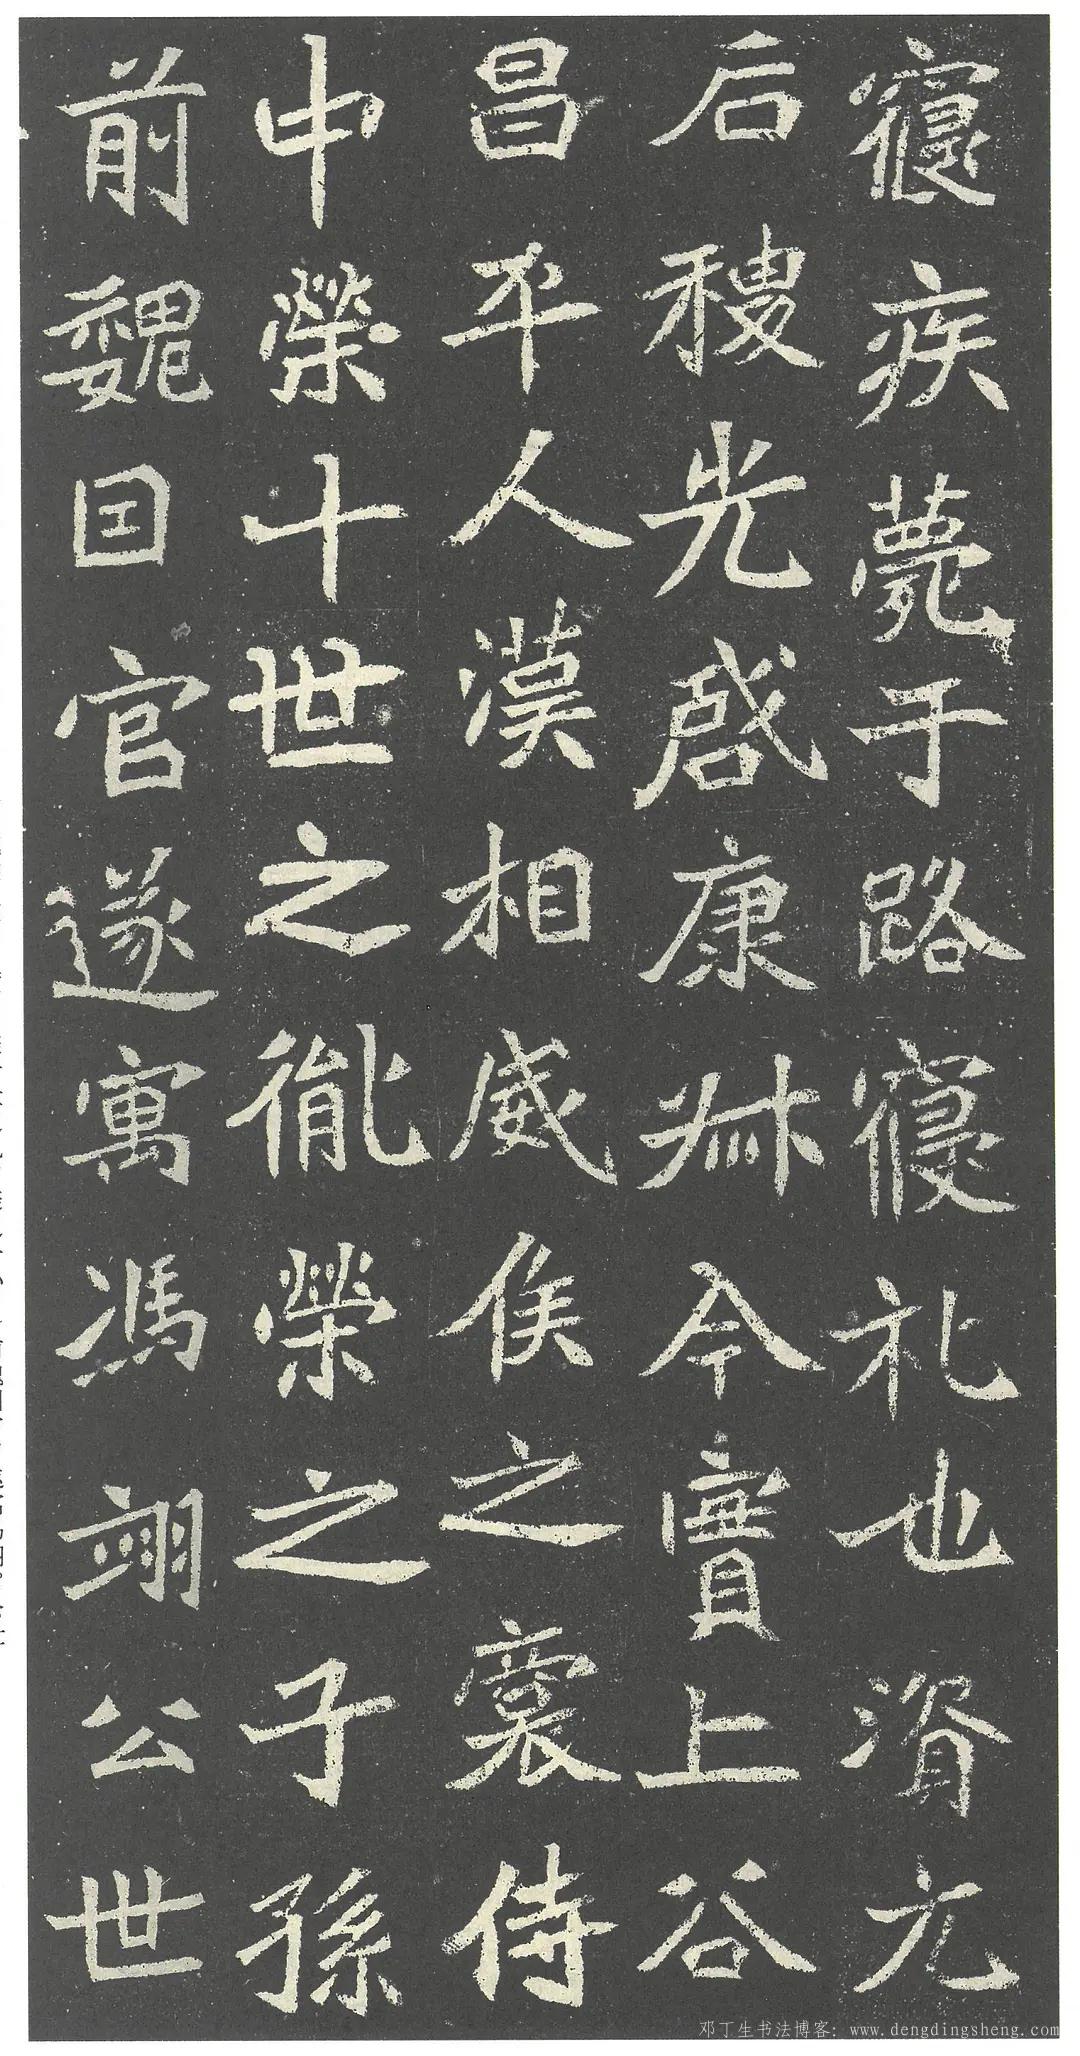 寢疾薨于路寢礼也元
后稷光啓康叔今實上谷
昌平人漢相威侯之裔侍
中榮十世之胤榮之子孫
前魏因官遂寓馮翊公世
邓丁生书法博客: www.dengdingsheng.com